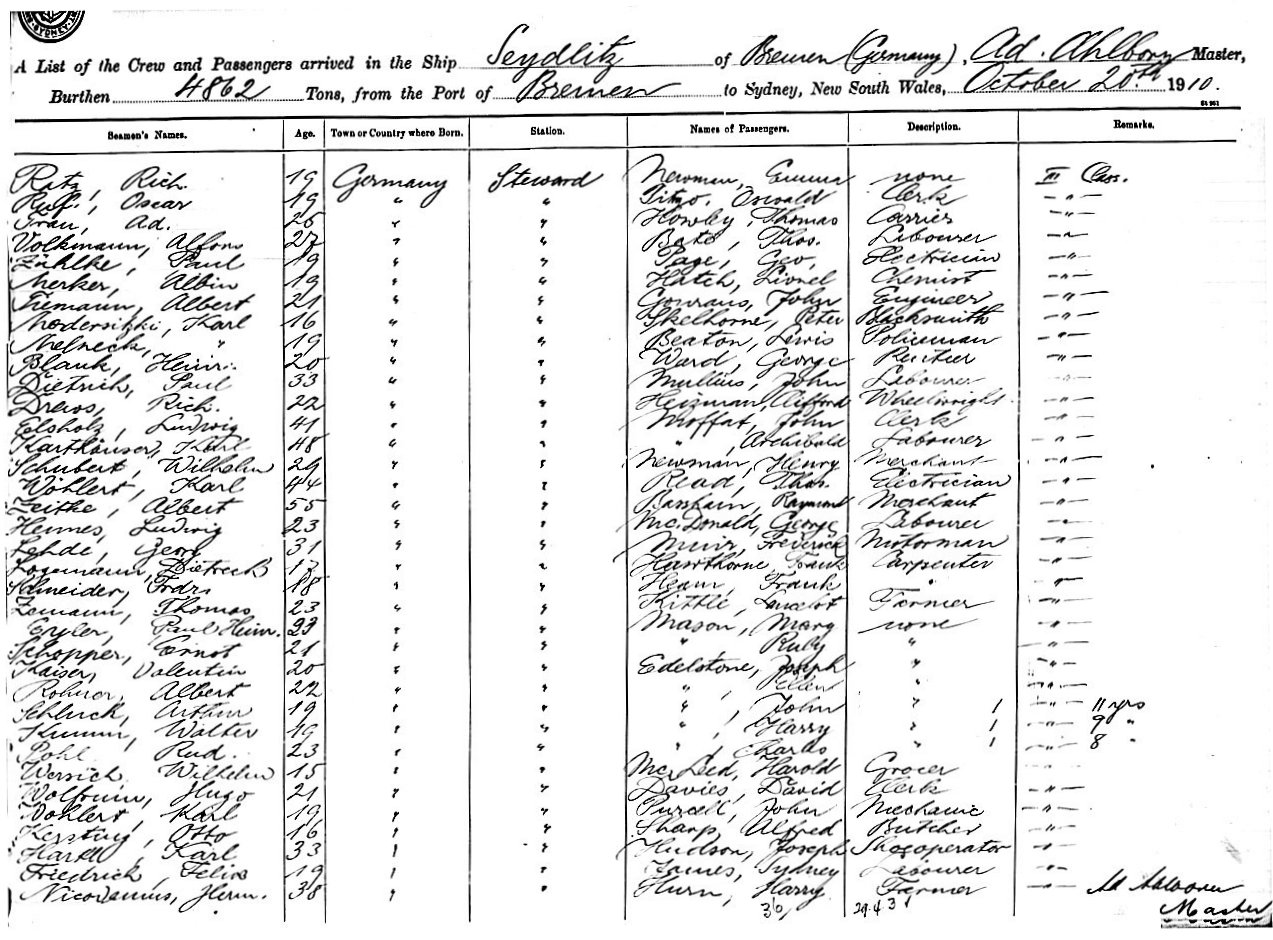 SYDNEY
A List of the Crew and Passengers arrived in the Ship Seydlitz of Bremen (Germany), Ad. Ahlborn Master,
Burthen 4862 Tons, from the Port of Bremen to Sydney, New South Wales, October 20th 1910.
Seamen's Names. Age. Town or Country where Born. Station. Names of Passengers. Description. Remarks.
Ratz, Rich. 19 Germany Steward Newman, Emma none III Class.
Ruf, Oscar 19 " " Oswald Clerk -"-
Frau, Ad. 25 " " Howley, Thomas Carrier -"-
Volkmann, Alfons 27 " " Bate, Thos. Labourer -"-
Zühlke, Paul 19 " " Page, Geo. Electrician -"-
Merker, Albin 19 " " Hatch, Lionel Chemist -"-
Tiemann, Albert 21 " " John Engineer -"-
Modersitzki, Karl 16 " " Skelhorne, Peter Blacksmith -"-
Melneck, " 19 " " Beaton, Lewis Policeman -"-
Blank, Heinr. 20 " " Ward, George -"-
Dietrich, Paul 33 " " Mullins, John Labourer -"-
Drews, Rich. 22 " " Heizman, Clifford Wheelwright -"-
Elsholz, Ludwig 41 " " Moffat, John Clerk -"-
Karthäuser, Karl 48 " " ", Archibald Labourer -"-
Schubert, Wilhelm 29 " " Newsman, Henry Merchant -"-
Wöhlert, Karl 44 " " Read, Thos. Electrician -"-
Zeitke, Albert 55 " " Barsham, Raymond Merchant -"-
Hennes, Ludwig 23 " " McDonald, George Labourer -"-
Lehde, Georg 31 " " Muir, Frederick Motorman -"-
Logemann, Dietrich 17 " " Hawthorne, Frank Carpenter -"-
Schneider, Frdr. 18 " " Heam, Frank " -"-
Zemann, Thomas 23 " " Kittle, Lancelot Farmer -"-
Exler, Paul Heinr. 23 " " Mason, Mary none -"-
Schopper, Ernst 21 " " ", Ruby " -"-
Kaiser, Valentin 20 " " Edelstone, Joseph " -"-
Rohner, Albert 22 " " ", Ellen " -"-
Schluck, Arthur 19 " " ", John " 1 -"- 11 yrs
Kumm, Walter 19 " " ", Harry " 1 -"- 9 "
Pohl, Rud. 23 " " ", Charls " 1 -"- 8 "
Wersich, Wilhelm 15 " " McLeed, Harold Grocer -"-
Wolfrum, Hugo 21 " " Davies, David Clerk -"-
Wohlert, Karl 19 " " Purcell, John Mechanic -"-
Kersting, Otto 16 " " Sharp, Alfred Butcher -"-
Karl 33 " " Hudson, Joseph Shoeoperator -"-
Friedrich, Felix 19 " " James, Sydney Labourer -"-
Nicodemus, Herm. 38 " " Hurn, Harry Farmer -"- Ad Ahlborn
36 29.4.31 Master